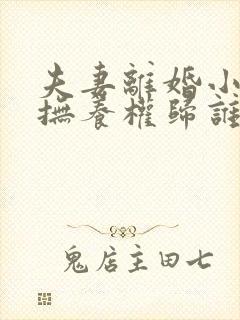 夫妻離婚小
撫養權歸誰
鬼店主田七